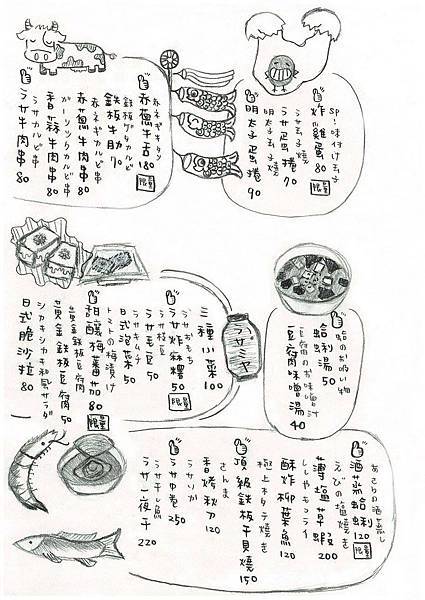 SP!味付け玉子
炸雞蛋 80
限量
ラサ玉子焼
ラサ蛋捲 70
明太子玉子焼
明太子蛋捲 90
赤ネギ牛タン
赤蔥牛舌 180
限量
鉄板ゲタカルビ
鉄板牛肋 70
赤ネギカルビ串
赤蔥牛肉串 80
ガーリックカルビ串
香蒜牛肉串 80
ラサカルビ串
ラサ牛肉串 80
蛤のお吸い物
蛤蜊湯 50
豆腐のお味噌汁
豆腐味噌湯 40
ラサミヤ
三種小菜 100
ラサおもち
ラサ炸麻糬 50
限量
ラサ枝豆
ラサ毛豆 50
ラサキムチ
日式泡菜 50
トマトの梅漬け
甜釀梅蕃茄 80
限量
黃金鉄板豆腐
黃金鉄板豆腐 50
シカキシカキ和風サラダ
日式脆沙拉 80
あさりの酒蒸し
酒蒸蛤蜊 120
限量
えびの塩焼き
薄塩草蝦 200
ししゃもフライ
酥炸柳葉魚 120
極上ホタテ焼き
頂級鉄板干貝焼 150
さんま
香烤秋刀 120
ラサイカ
ラサ中卷 250
ラサ干し魚
ラサ一夜干 220